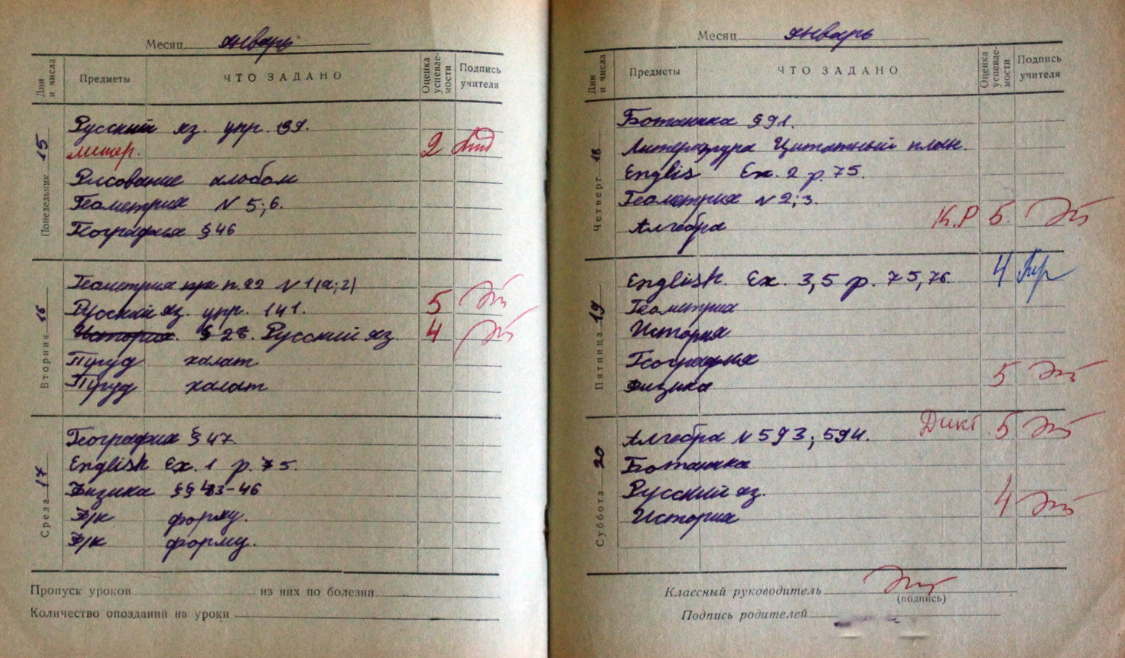 Месяц январь
Дни и числа Предметы ЧТО ЗАДАНО Оценка успевае- мости Подпись учителя
Понедельник 15
Русский яз. упр. 139.
литер. 2
Рисование альбом
Геометрия N 5; 6.
География § 46
Вторник 16
Геометрия п. 22 N 1(а; 2)
Русский яз. упр. 141. 5
История. § 28. Русский яз. 4
Пугуд халат
Пугуд халат
Среда 17
География § 47
English Ex. 1 p. 75.
Физика §§ 43-46
Ф/к форму.
Ф/к форму.
Пропуск уроков из них по болезни
Количество опозданий на уроки
Месяц январь
Дни и числа Предметы ЧТО ЗАДАНО Оценка успевае- мости Подпись учителя
Четверг 18
Ботаника § 91.
Литература Цитатный план.
Englis Ex. 2 p. 75.
Геометрия N 2; 3.
Алгебра К.Р 5.
Пятница 19
English. Ex. 3,5 p. 75, 76. 4
Геометрия
История
География
Физика 5
Суббота 20
Алгебра N 593; 594. Дикт 5
Ботаника
Русский яз. 4
История
Классный руководитель
(подпись)
Подпись родителей